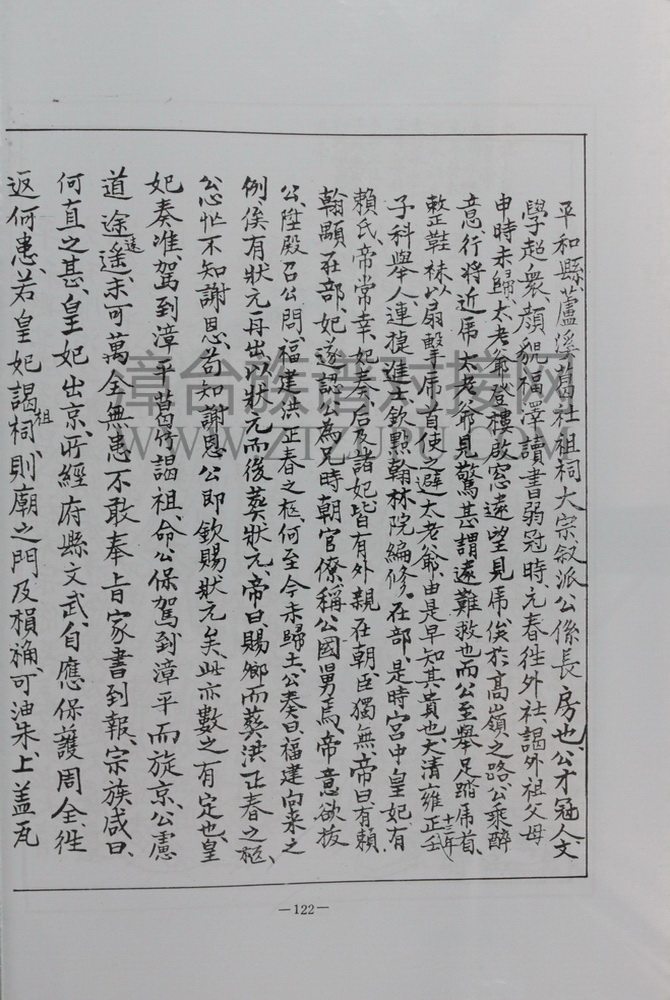 平和縣蘆溪葛社祖祠大宗敘派公係長房也、公才冠人文
學超衆、顔貌福澤讀書弱冠時、元春往外社、謁外祖父母
申時未歸、太老爺登樓啟窓遠望見虎俟於高嶺之路、公乘醉
意、行將近虎太老爺見驚甚謂遠難救也而公至舉足踏虎首、
整鞋袜以扇擊虎首使之避太老爺、由是早知其貴也大清雍正十二年壬
子科舉人、連捷進士、欽點翰林院編修、在部、是時宮中皇妃有
賴氏、帝常幸、妃奏、后及諸妃、皆有外親在朝、臣獨無、帝曰有賴
翰顯在部、妃遂認公為兄時朝官僚、稱公國舅焉、帝意欲拔
公、陞殿召公問、福建洪正春之柩、何至今未歸土、公奏曰、福建向来之
例、俟有狀元再出以狀元而後葬狀元、帝曰、賜鄉而葬洪正春之柩、
公忙不知謝恩、苟知謝恩公即欽賜狀元矣、此亦數之有定也、皇
妃奏准、駕到漳平葛竹謁祖、命公保駕到漳平而旋京、公慮
道途遠遙、未可萬全無患不敢奉旨家書到報、宗族咸曰、
何直之甚、皇妃出京、所經府縣文武、自應保護周全、往
返何患、若皇妃謁祖祠、則廟之門及楨桷、可油朱、上盖瓦
—122—
漳台族谱对接网
WWW.ZTZUPU.COM